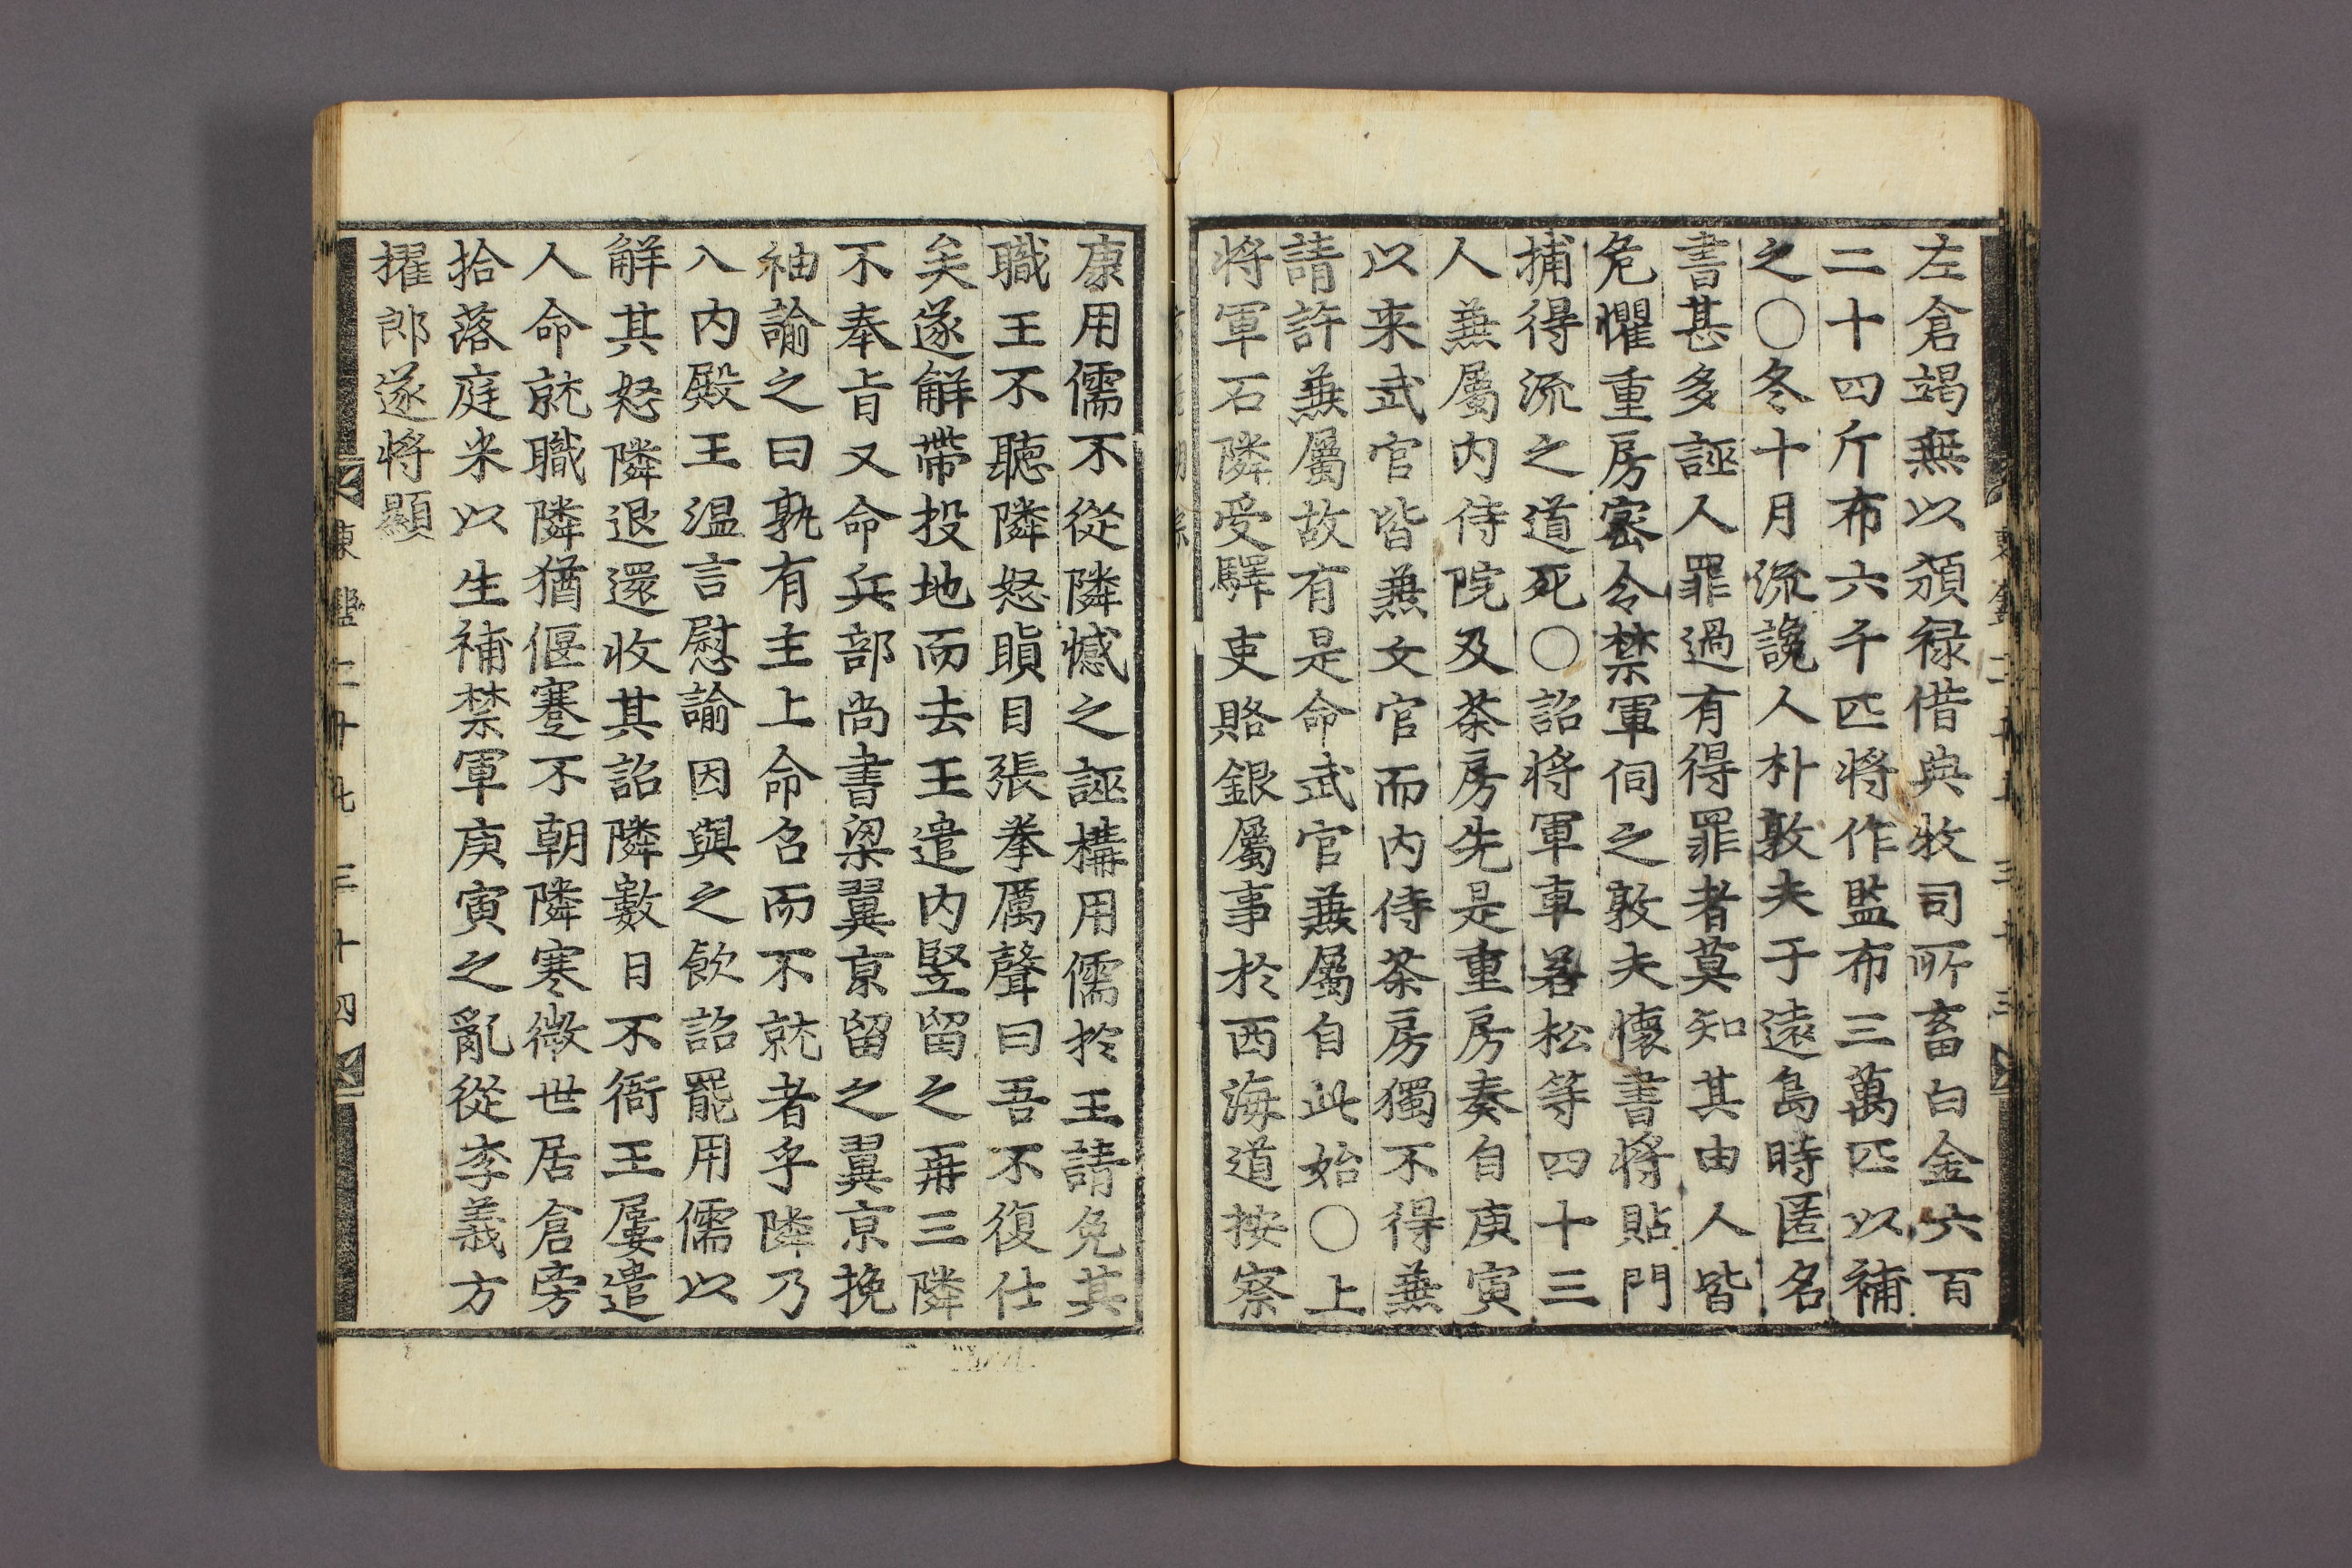 左倉竭無以頒禄借典牧司所畜白金六百
二十四斤布六千匹將作監布三萬匹以補
之○冬十月流讒人朴敦夫于遠島時匿名
書甚多誣人罪過有得罪者莫知其由人皆
危懼重房密令禁軍伺之敦夫懷書將貼門
捕得流之道死○詔將軍車若松等四十三
人兼屬内侍院及茶房先是重房奏自庚寅
以来武官皆兼文官而内侍茶房獨不得兼
請許兼屬故有是命武官兼屬自此始○上
將軍石隣受驛吏賂銀屬事於西海道按察
康用儒不從隣憾之誣構用儒於王請免其
職王不聽隣怒瞋目張拳厲聲曰吾不復仕
矣遂解帶投地而去王遣内竪留之再三隣
不奉旨又命兵部尚書梁翼京留之翼京挽
袖諭之曰孰有主上命召而不就者乎隣乃
入内殿王温言慰諭因與之飮詔罷用儒以
解其怒隣退還收其詔隣數日不衙王屢遣
人命就職隣猶偃蹇不朝隣寒微世居倉旁
拾落庭米以生補禁軍庚寅之亂從李義方
擢郎遂將顯
東鑑二十九 三十四